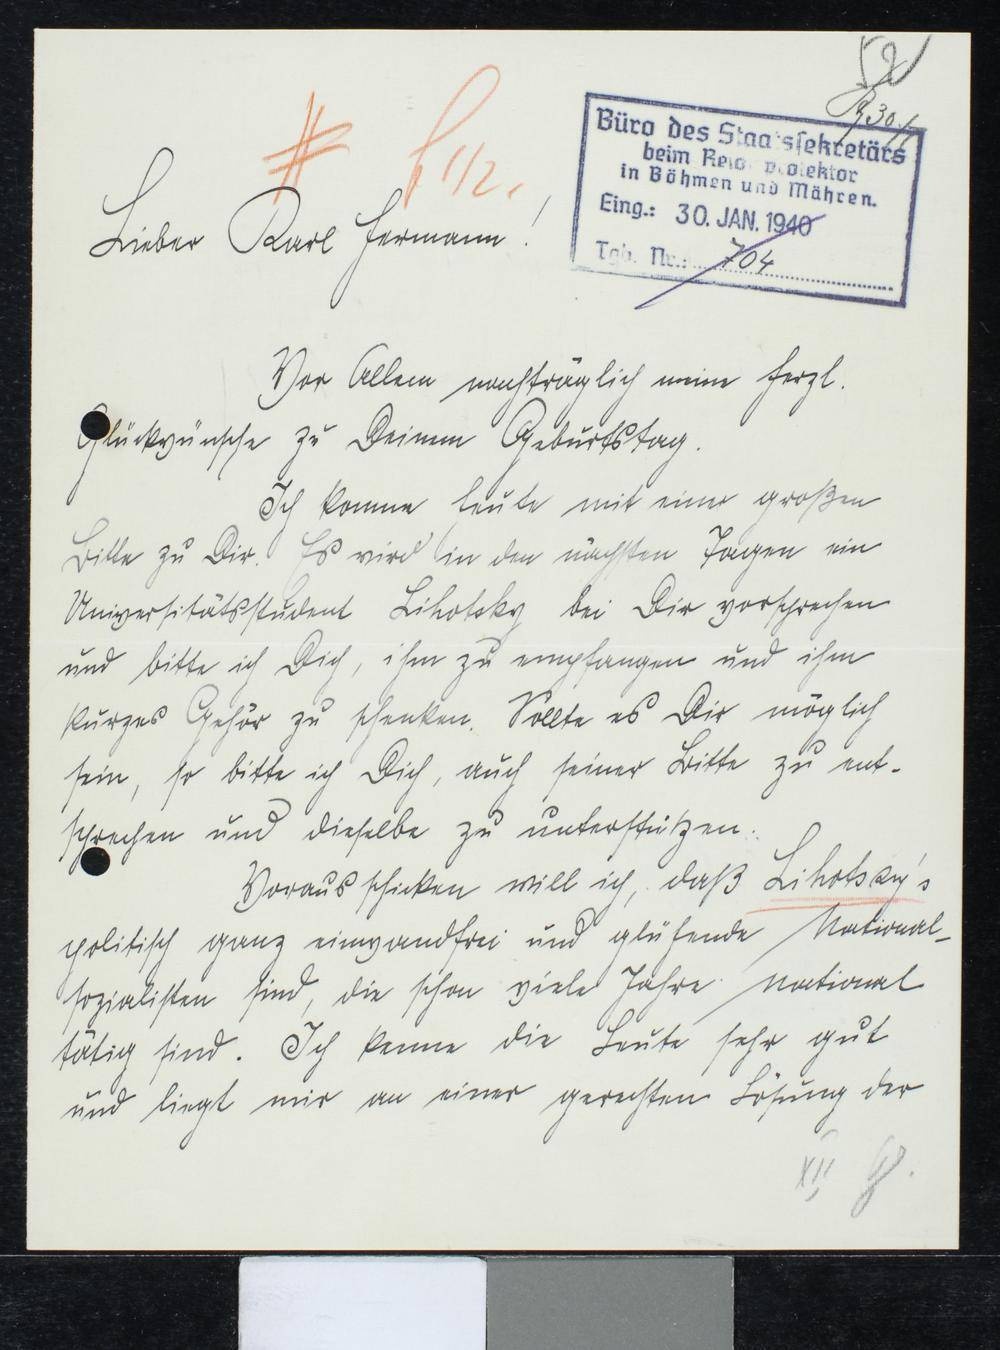 52
30/1
Büro des Staatssekretärs
beim Reichsprotektor
in Böhmen und Mähren.
Eing.: 30. JAN. 1940
Tgb. Nr.: 704
1/2.
Lieber Karl Hermann!
Vor Allem nachträglich meine herzl.
Glückwünsche zu Deinem Geburtstag.
Ich komme heute mit einer großen
Bitte zu Dir. Es wird in den nächsten Tagen ein
Universitätsstudent Lihotsky bei Dir vorsprechen
und bitte ich Dich, ihn zu empfangen und ihm
kurzes Gehör zu schenken. Sollte es Dir möglich
sein, so bitte ich Dich, auch seiner Bitte zu ent-
sprechen und dieselbe zu unterstützen.
Vorausschicken will ich, daß Lihotsky's
politisch ganz einwandfrei und glühende National-
sozialisten sind, die schon viele Jahre national
tätig sind. Ich kenne die Leute sehr gut
und liegt mir an einer gerechten Lösung der
XII